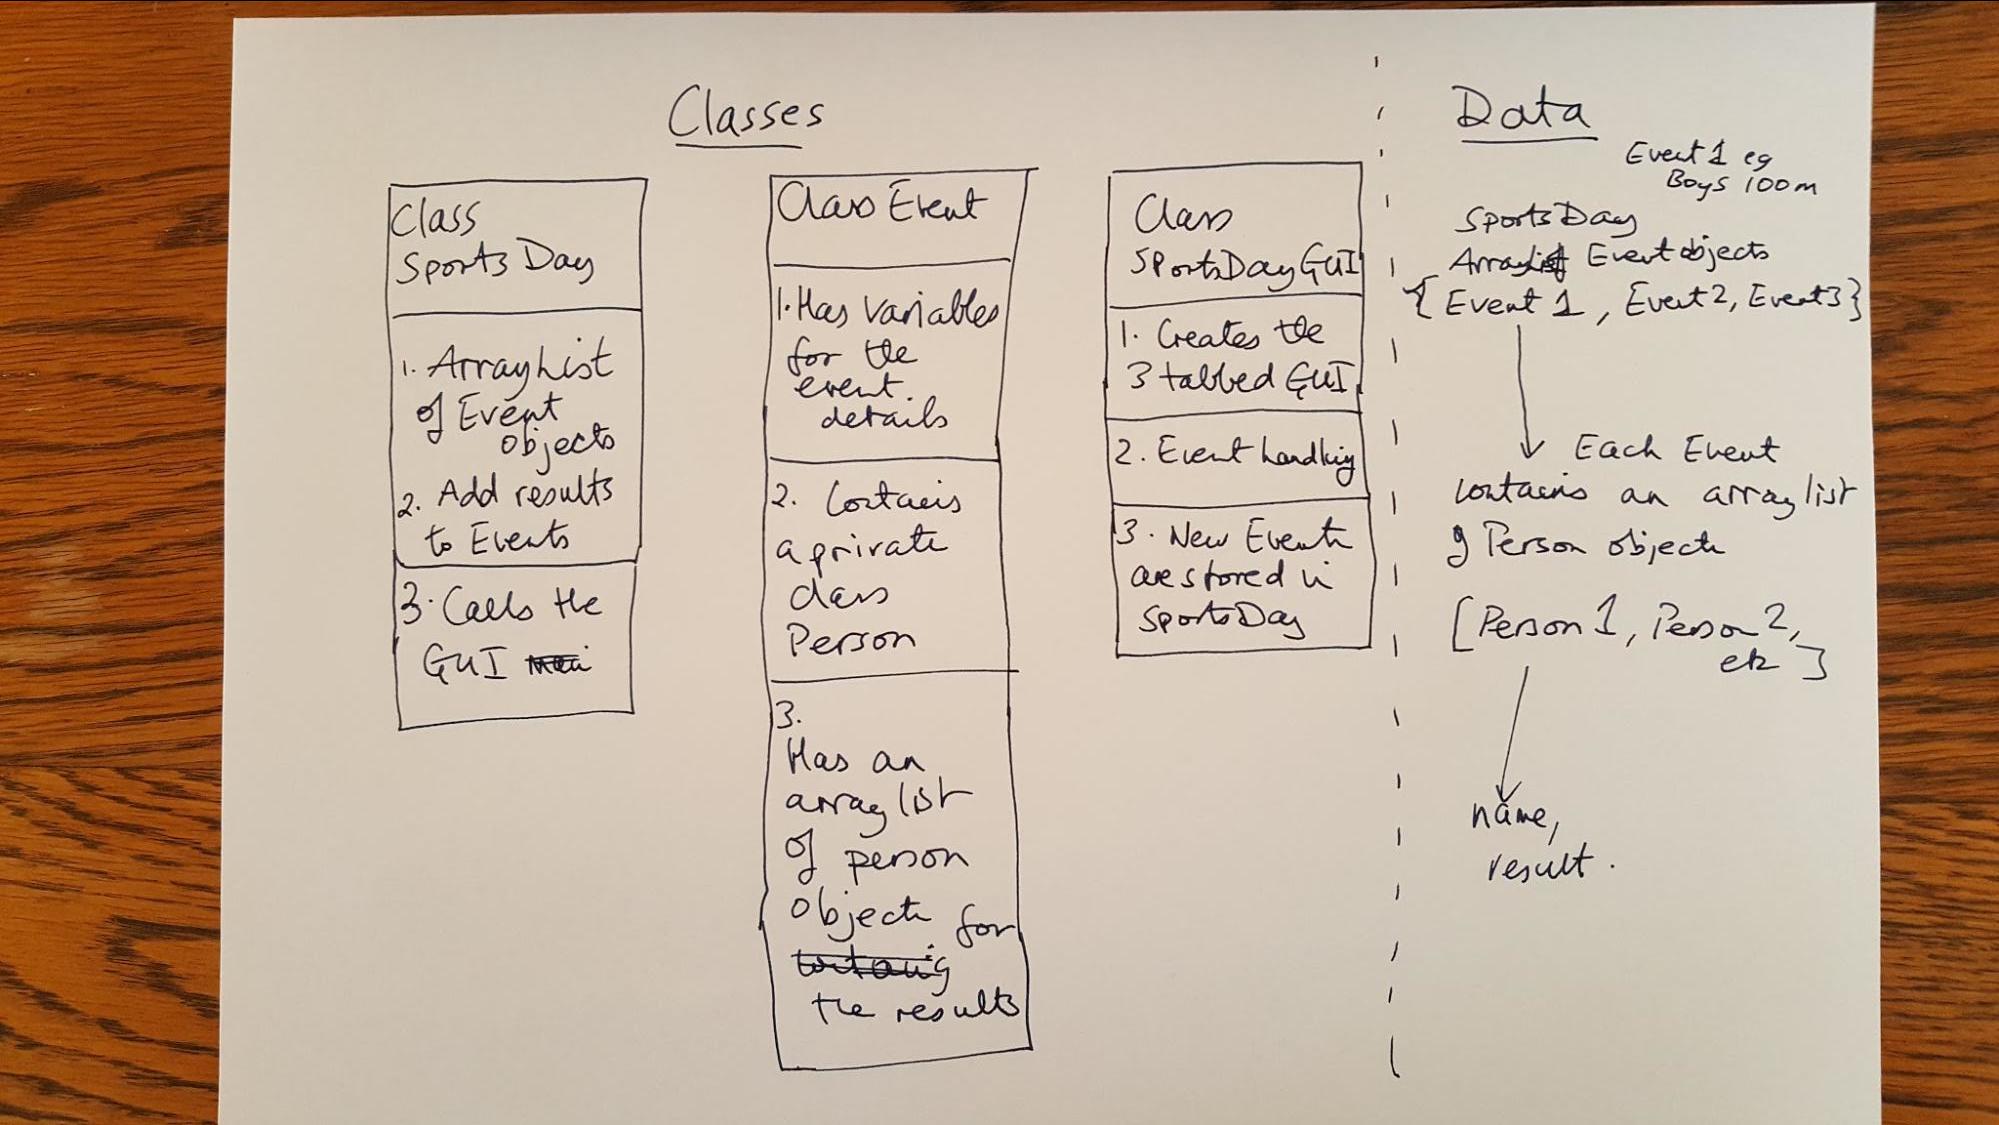 Classes
Class
SportsDay
1. ArrayList
of Event
objects
2. Add results
to Events
3. Calls the
GUI
Class Event
1. Has variables
for the
event
details
2. Contains
a private
class
Person
3.
Has an
array list
of person
objects for
the results
Class
SportsDayGUI
1. Creates the
3 tabbed GUI
2. Event handling
3. New Events
are stored in
SportsDay
Data
Event 1 eg
Boys 100m
SportsDay
Arraylist Event objects
{ Event 1, Event 2, Event 3 }
Each Event
contains an array list
of Person objects
[Person 1, Person 2,
etc ]
name,
result.